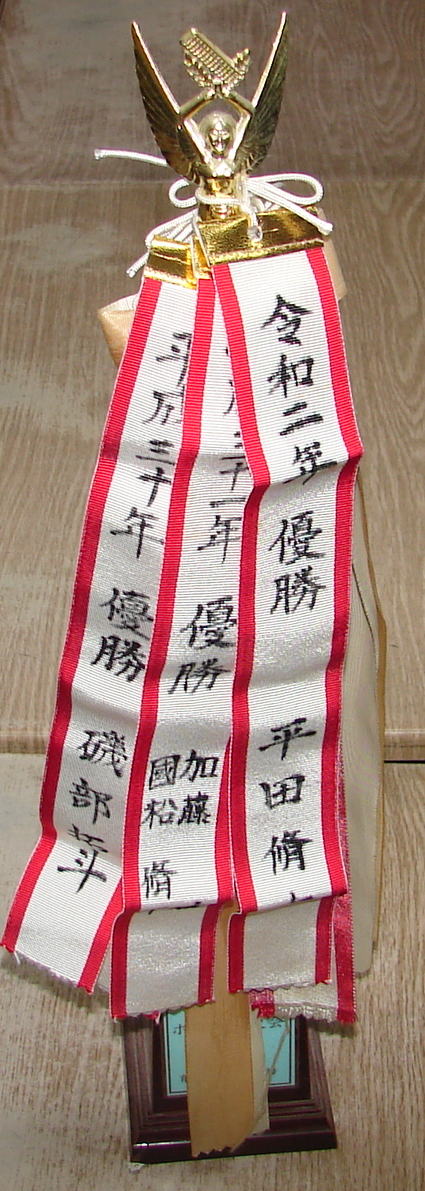 令和二年 優勝 平田 脩
三十一年 優勝 加藤
國松 脩
平成三十年 優勝 磯部